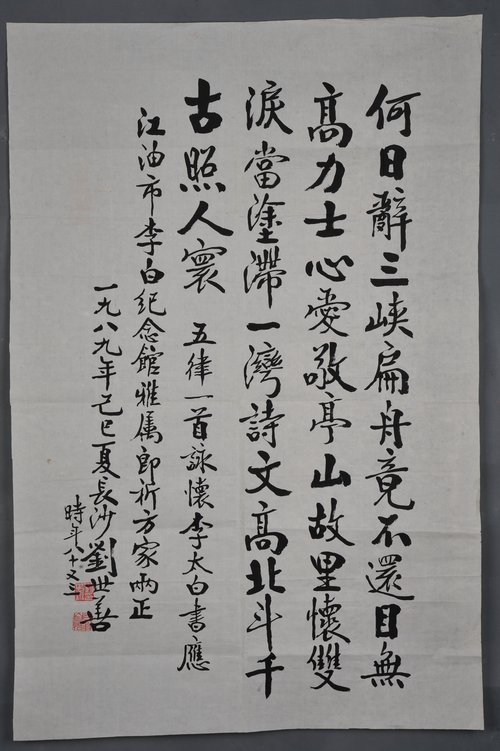 何日辭三峽扁舟竟不還目無
高力士心愛敬亭山故里懷雙
淚當塗滯一灣詩文高北斗千
古照人寰 五律一首詠懷李太白書應
江油市李白紀念館雅属即祈方家兩正
一九八九年己巳夏長沙劉世善
時年八十又三